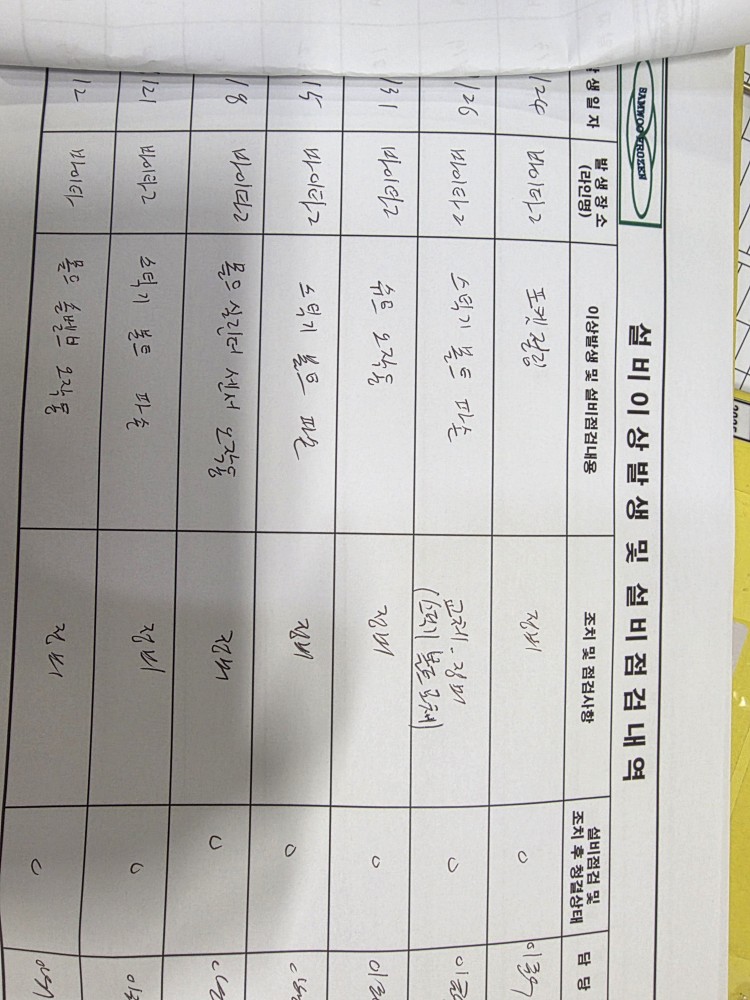 SAMWOO FROZEN
설비이상발생 및 설비점검내역
생일자 발생장소 (라인명) 이상발생 및 설비점검내용 조치 및 점검사항 설비점검 및 조치 후 청결상태 담당
/24 바이타2 포켓점검 정비 ○
/26 바이타2 스틱기 볼트 파손 교체-정비 (스틱기 볼트 교체) ○
/31 바이타2 슈트 오작동 정비 ○
/5 바이타2 스틱기 볼트 파손 정비 ○
/8 바이타2 몰드 실린더 센서 오작동 정비 ○
/21 바이타2 스틱기 볼트 파손 정비 ○
/2 바이타 몰드 오작동 정비 ○